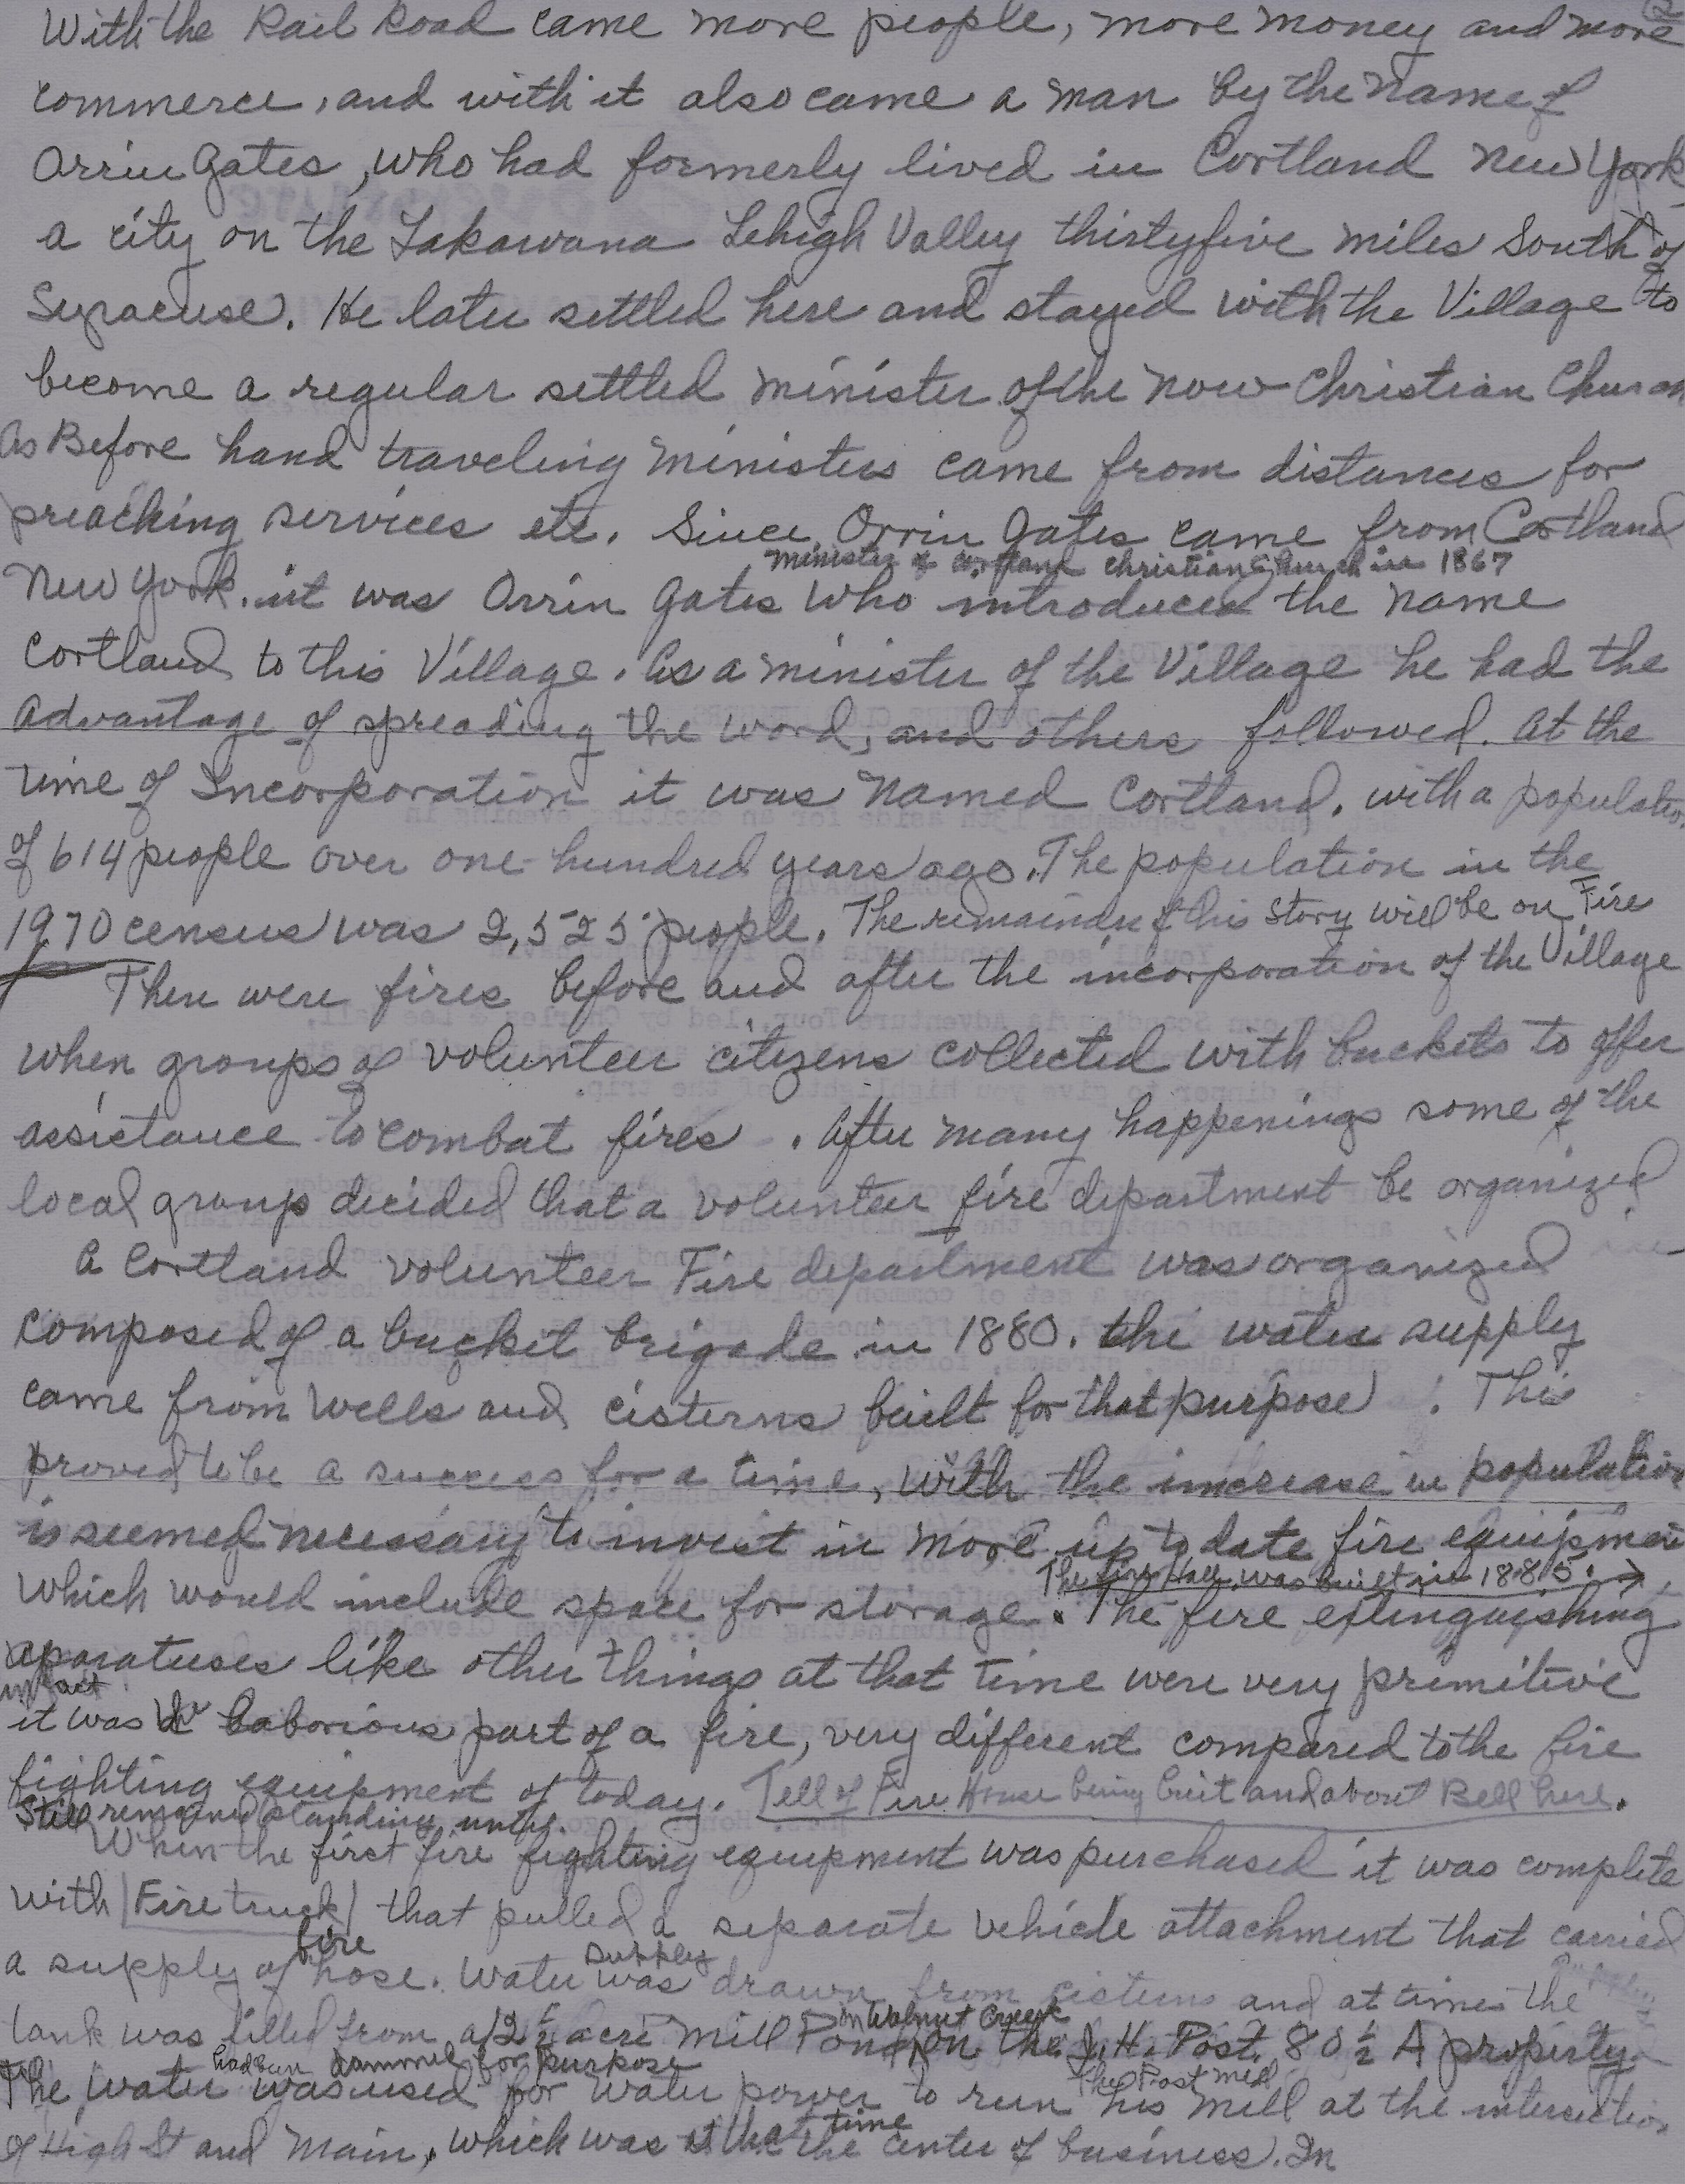 2
With the Rail Road came more people, more money and more
commerce, and with it also came a man by the name of
Orrin Gates, who had formerly lived in Cortland New York
a city on the Lakawana Lehigh Valley thirtyfive miles South of
Syracuse. He later settled here and stayed with the Village to
become a regular settled minister of the now Christian Church
As Before hand traveling ministers came from distances for
preaching services etc. Since Orrin Gates came from Cortland
minister of Cortland Christian Church in 1867
New York. it was Orrin Gates who introduced the name
Cortland to this Village. As a minister of the Village he had the
Advantage of spreading the word, and others followed. At the
time of Incorporation it was named Cortland. with a population
of 614 people over one hundred years ago. The population in the
1970 census was 2,525 people. The remainder of this story will be on Fire
There were fires before and after the incorporation of the Village
when groups of volunteer citizens collected with buckets to offer
assistance to combat fires. After many happenings some of the
local group decided that a volunteer fire department be organized
A Cortland volunteer Fire department was organized
composed of a bucket brigade in 1880. the water supply
came from wells and cisterns built for that purpose. This
proved to be a success for a time, with the increase in population
is seemed necessary to invest in more up to date fire equipment
The fire Hall was built in 1885. →
which would include space for storage. The fire extinguishing
aparatuses like other things at that time were very primitive
in fact
it was a laborious part of a fire, very different compared to the fire
fighting equipment of today. Tell of Fire House being buit and about Bell here.
Still remained standing until.
When the first fire fighting equipment was purchased it was complete
with Fire truck that pulled a separate vehicle attachment that carried
fire supply
a supply of hose. Water was drawn from cisterns and at times the
on Walnut Creek
tank was filled from a 12 1/2 acre Mill Pond on the J. H. Post 80 1/2 A property
had been dammed for purpose the Post mill
The water was used for water power to run his mill at the intersection
of High St and Main, which was at that time the center of business. In